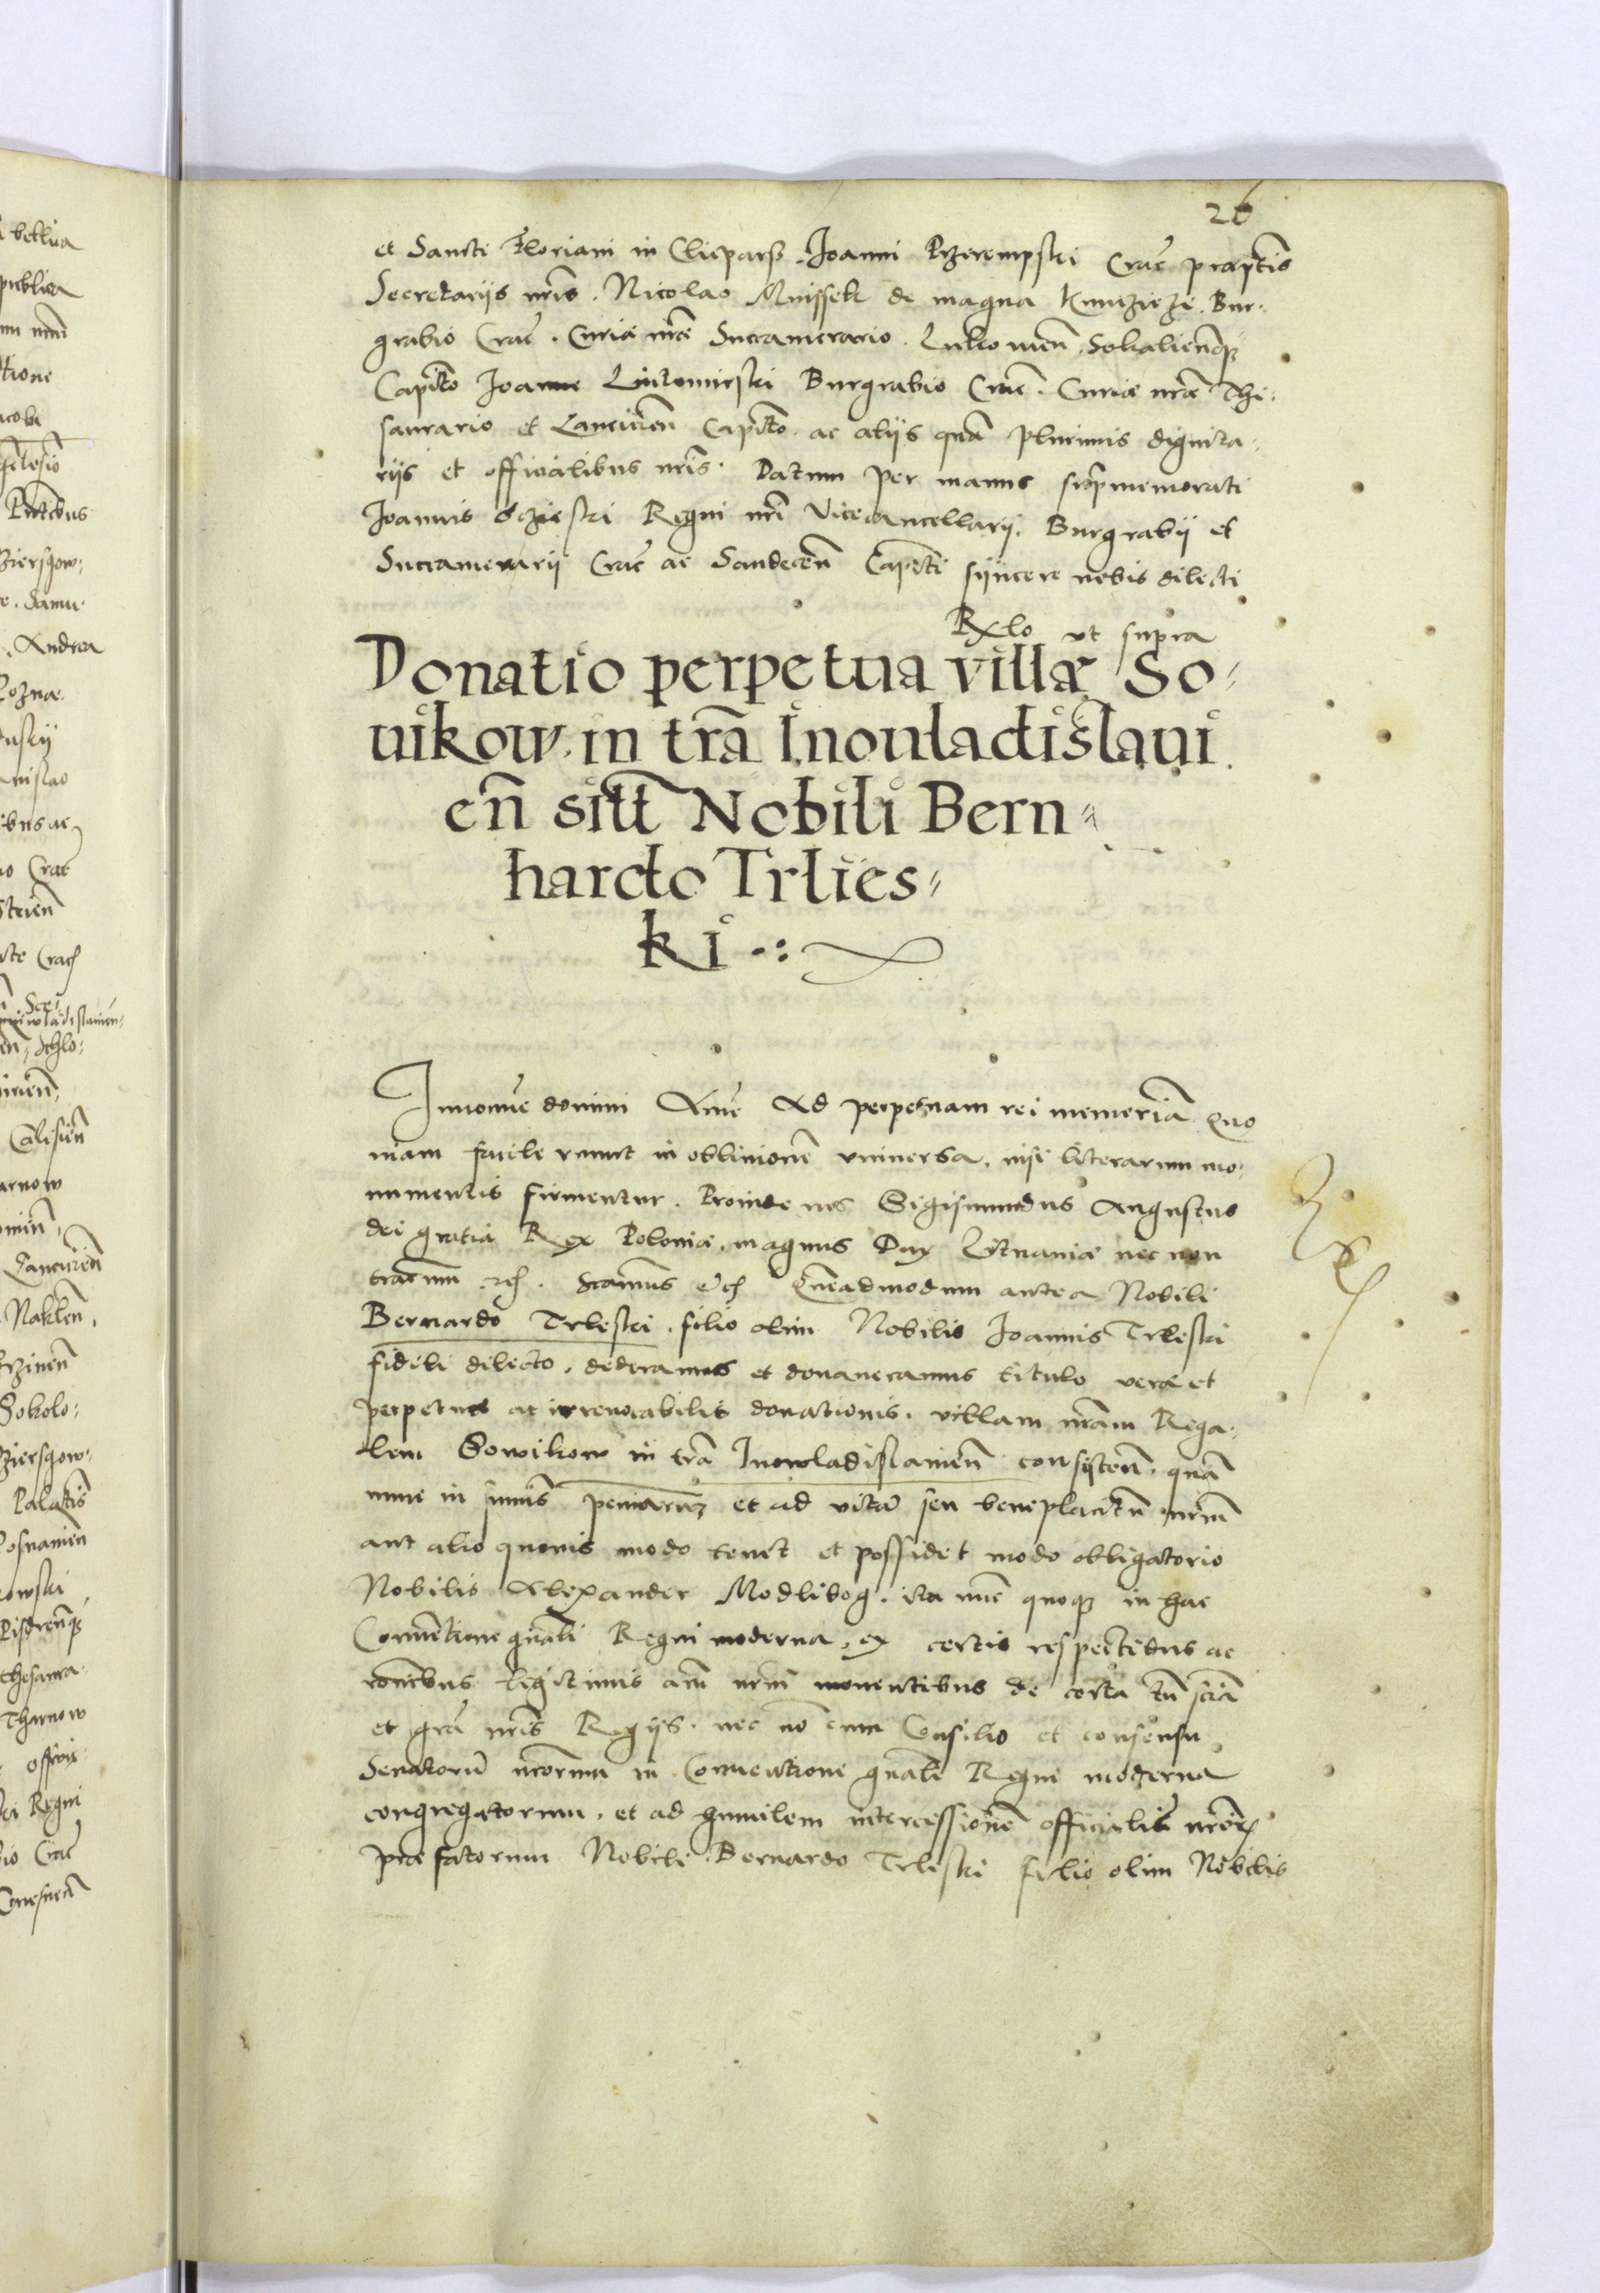 26
et Sancti Floriani in Clieparß. Joanni Przerempski Crac̄ praep̄tis
Secretariis nr̄is. Nicolao Mnissek de magna Kunczicze. Bur-
grabio Crac̄. Curiæ nr̄æ Succamerario. Lukowien̄. Sokalien̄q̄
Capit̄o Joanne Lutomirski Burgrabio Crac̄. Curiæ nr̄æ The-
saurario et Lanciciēn Capit̄o. ac aliis quā plurimis dignita-
riis et officialibus nr̄is. Datum per manus sup̄memorati
Joannis Oczieski Regni nr̄i Vicecancellarii. Burgrabii et
Succamerarii Crac̄ ac Sandecen̄ Capit̄i syncere nobis dilecti
Rx̄lo ut supra
Donatio perpetua villæ So-
uikow. in tr̄a Inouladislaui
en̄ sitt̄ Nobili Bern-
hardo Trlies-
ki
In no̅mie domini Ame̅ Ad perpetuam rei memoriā Quo
niam facile ruunt in oblivionē universa. nisi literarum mo-
numentis firmentur. Proinde nos Sigismundus Augustus
dei gratia Rex Poloniæ. magnus Dux Lituaniæ nec non
trarum etc. Scamus etc Quēadmodum antea Nobili
Bernardo Trleski. filio olim Nobilis Joannis Trleski
fideli dilecto. dederamus et donaveramus titulo veræ et
perpetuæ ac irrevocabilis donationis. villam nr̄am Rega-
lem Sowikow in tr̄a Inowladislavien̄ consisten̄. quā
nunc in sum̄is pecuniarū et ad vitā seu beneplacitū nr̄um
aut alio quovis modo tenet et possidet modo obligatorio
Nobilis Alexander Modlibog. ita nunc quoq̄ in hac
Conventione gn̄ali Regni moderna. ex certis respectibus ac
rōnibus legitimis aīm nr̄m moventibus de certa tū sciā
et gr̄a nr̄is Regiis. nec nō cum Consilio et consensu
Senatorū nr̄orum in Conventione gn̄ali Regni moderna
congregatorum. et ad humilem intercessionē officialiū nr̄orū
præfatorum Nobili Bernardo Trleski filio olim Nobilis